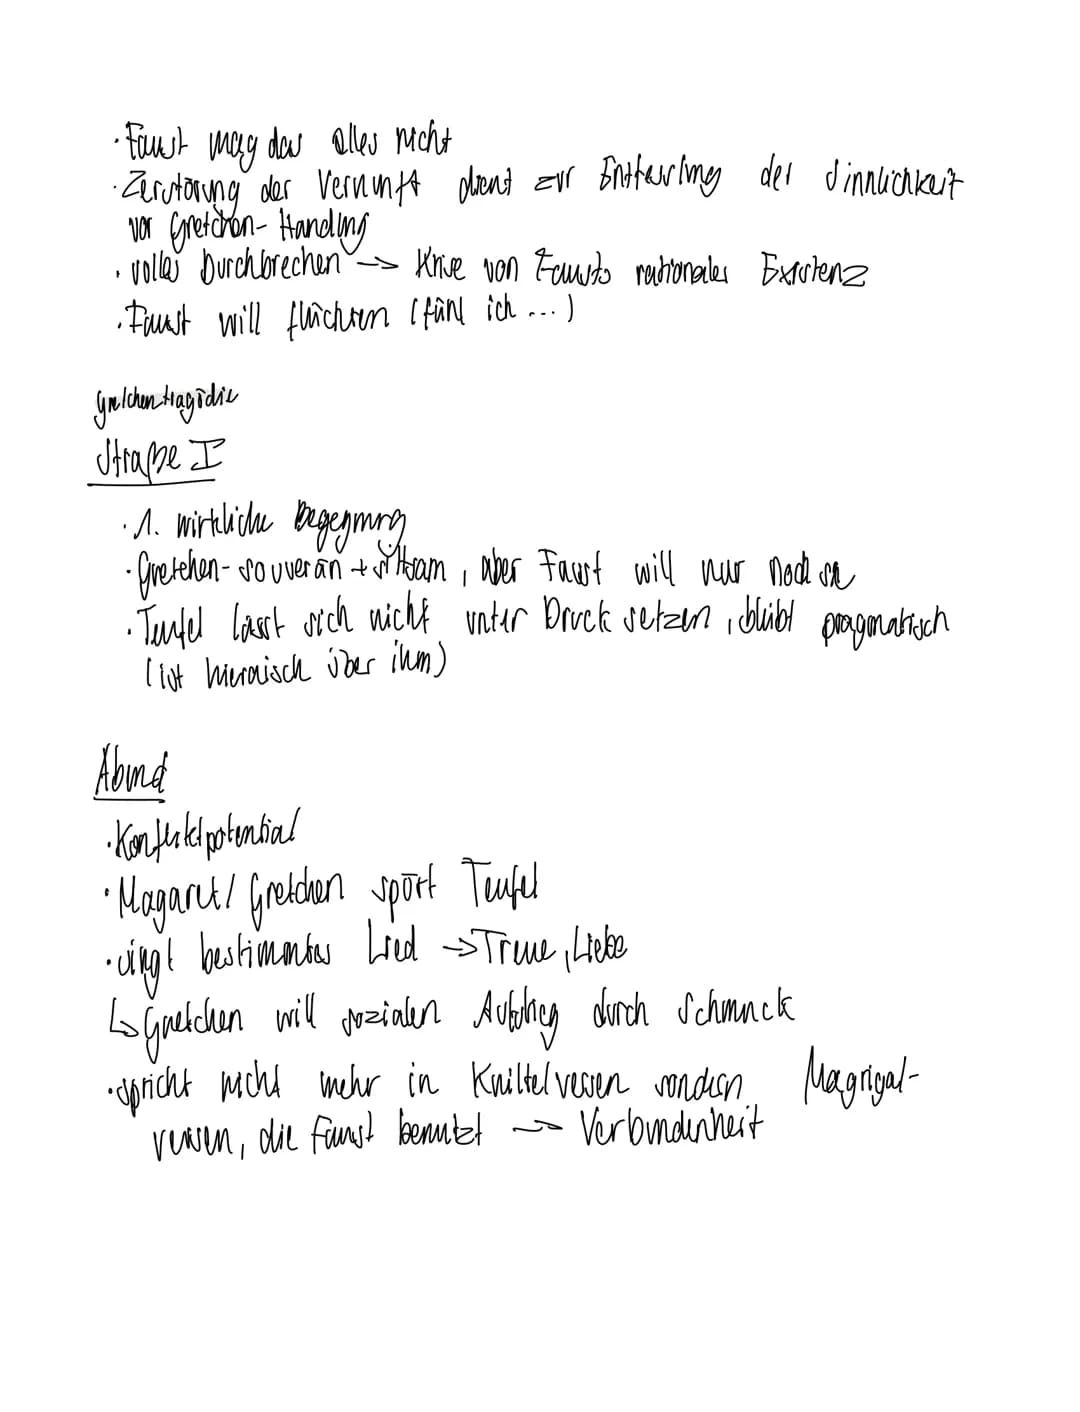 · Faust mag das alles nicht
· Zerstörung der Vernunft dient zur Entfesslung der Sinnlichkeit
vor Gretchen-Handlung
· volles Durchbrechen -> Krise von Fausts rationales Existenz
· Faust will flüchten (fühl ich ...)
Gretchentragödie
Straße I
· 1. wirkliche Begegnung
· Gretchen - souverän + sittsam, aber Faust will nur noch sie
· Teufel lässt sich nicht unter Druck setzen, bleibt pragmatisch
(ist hieraisch über ihm)
Abend
· Konfliktpotential
· Magaret / Gretchen spürt Teufel
· singt bestimmtes Lied -> Treue, Liebe
↳ Gretchen will sozialen Aufstieg durch Schmuck
· spricht nicht mehr in Knittelversen sondern Magrigal-
versen, die Faust benutzt -> Verbundenheit